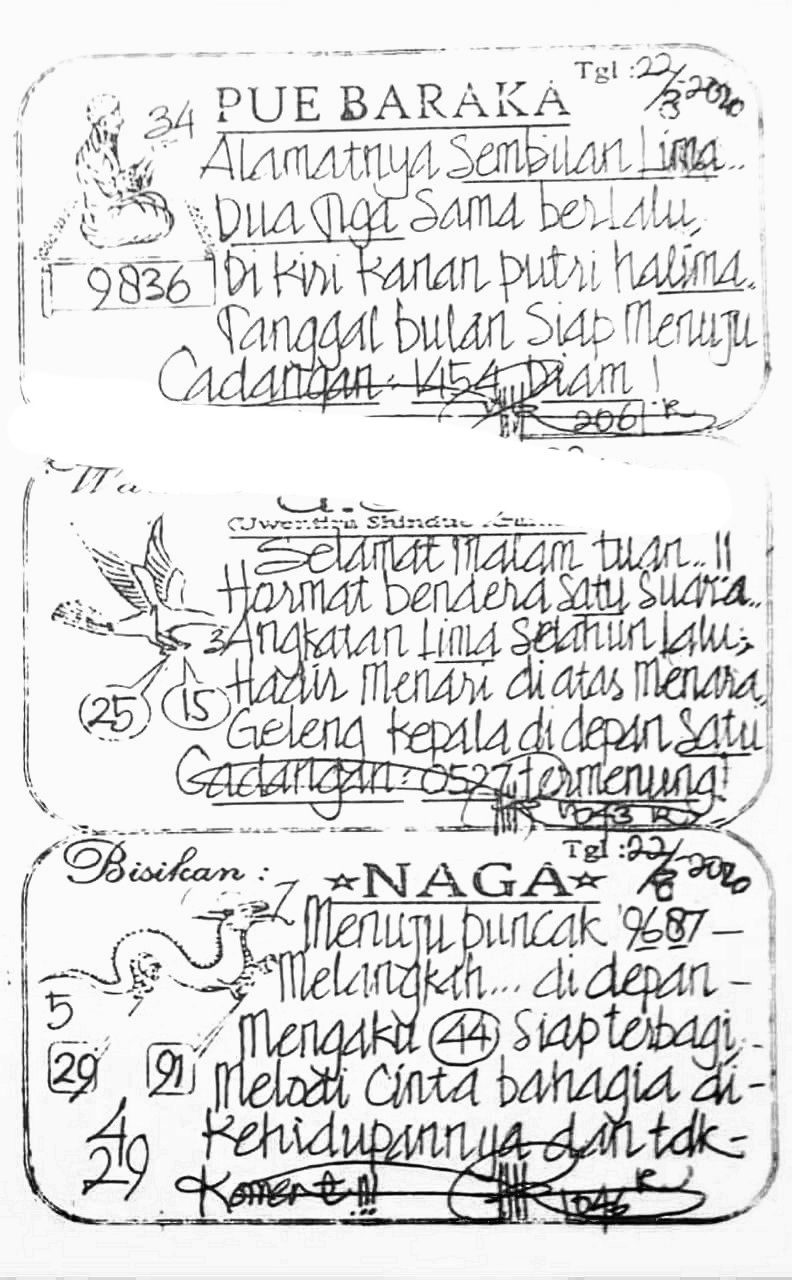 Tgl : 22/8-2020
34 PUE BARAKA
Alamatnya Sembilan Lima..
Dua Tiga Sama berlalu,
9836 Di kiri kanan putri halima.
Tanggal bulan Siap Menuju
Cadangan : 1454 Diam !
206 R
Selamat Malam tuan.. !!
Hormat bendera Satu Suara..
3 Angkatan Lima Setahun Lalu;
Hadir Menari di atas Menara,
25 15
Geleng kepala di depan Satu
Cadangan : 0527 termenung!
Bisikan :
Tgl : 22/8-2020
☆NAGA☆
7 Menuju puncak '9687 –
Melangkah... di depan –
5 Mengaku 44 Siap terbagi
29 91 Melodi Cinta bahagia di-
4 Kehidupannya dan tdk-
29
Koment !!!